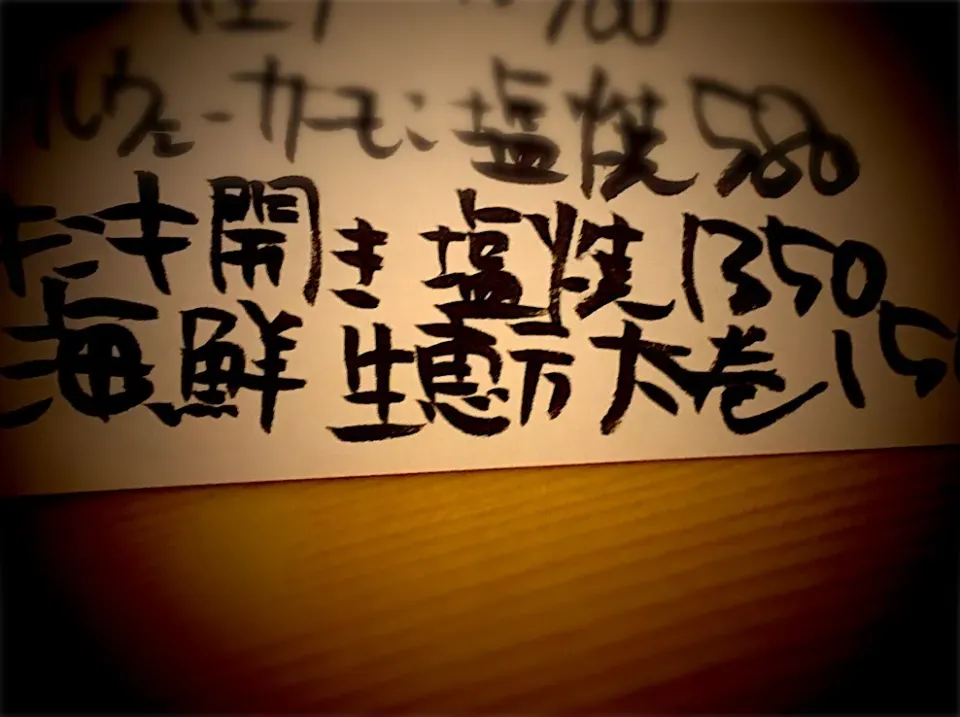 700
ルウェーサーモン 塩焼 580
キンキ開き 塩焼 1350
海鮮 生恵方太巻 15